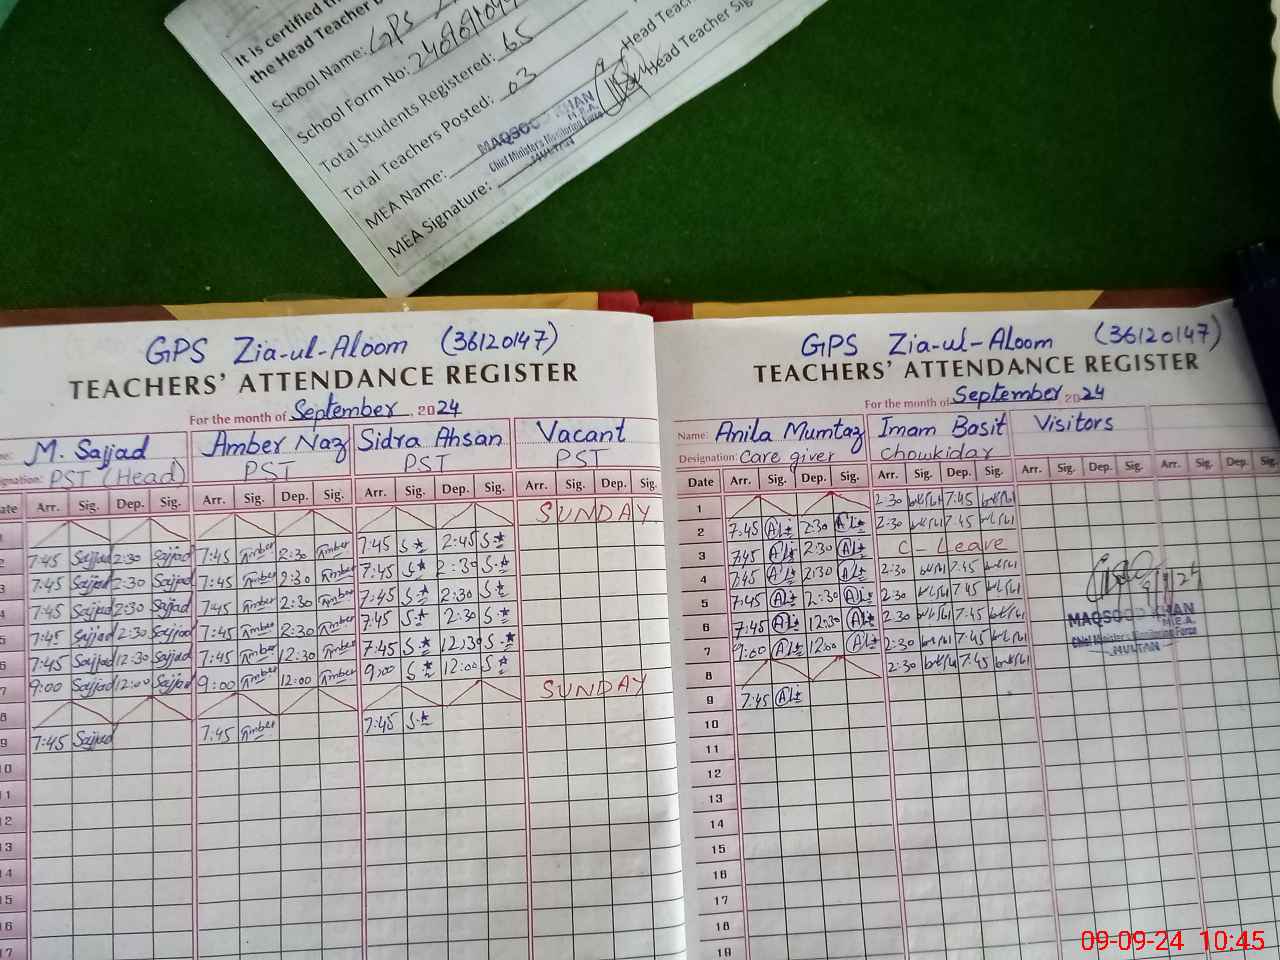 It is certified th
the Head Teacher
School Name: GPS
School Form No:
Total Students Registered: 65
Total Teachers Posted: 03
Head Teac
Head Teacher Sig
MEA Name: MAQSOOD KHAN
M.E.A.
Chief Minister's Monitoring Force
MEA Signature:
GPS Zia-ul-Aloom (36120147)
TEACHERS' ATTENDANCE REGISTER
For the month of September, 2024
M. Sajjad Amber Naz Sidra Ahsan Vacant
PST (Head) PST PST PST
Arr. Sig. Dep. Sig. Arr. Sig. Dep. Sig. Arr. Sig. Dep. Sig. Arr. Sig. Dep. Sig.
SUNDAY
7:45 Sajjad 2:30 Sajjad 7:45 Amber 2:30 Amber 7:45 S 2:45 S
7:45 Sajjad 2:30 Sajjad 7:45 Amber 2:30 Amber 7:45 S 2:30 S
7:45 Sajjad 2:30 Sajjad 7:45 Amber 2:30 Amber 7:45 S 2:30 S
7:45 Sajjad 2:30 Sajjad 7:45 Amber 2:30 Amber 7:45 S 2:30 S
7:45 Sajjad 12:30 Sajjad 7:45 Amber 12:30 Amber 7:45 S 12:30 S
9:00 Sajjad 12:00 Sajjad 9:00 Amber 12:00 Amber 9:00 S 12:00 S
SUNDAY
9 7:45 Sajjad 7:45 Amber 7:45 S
10
11
12
13
14
15
16
17
GPS Zia-ul-Aloom (36120147)
TEACHERS' ATTENDANCE REGISTER
For the month of September 2024
Name: Anila Mumtaz Imam Basit Visitors
Designation: Care giver Chowkidar
Date Arr. Sig. Dep. Sig. Arr. Sig. Dep. Sig. Arr. Sig. Dep. Sig. Arr. Sig. Dep. Sig.
1 2:30 7:45
2 7:45 2:30 2:30 7:45
3 7:45 2:30 C - Leave
4 7:45 2:30 2:30 7:45
5 7:45 2:30 2:30 7:45
6 7:45 12:30 2:30 7:45
7 9:00 12:00 2:30 7:45
8 2:30 7:45
9 7:45
10
11
12
13
14
15
16
17
18
19
MAQSOOD KHAN
M.E.A.
Chief Minister's Monitoring Force
MULTAN
09-09-24 10:45